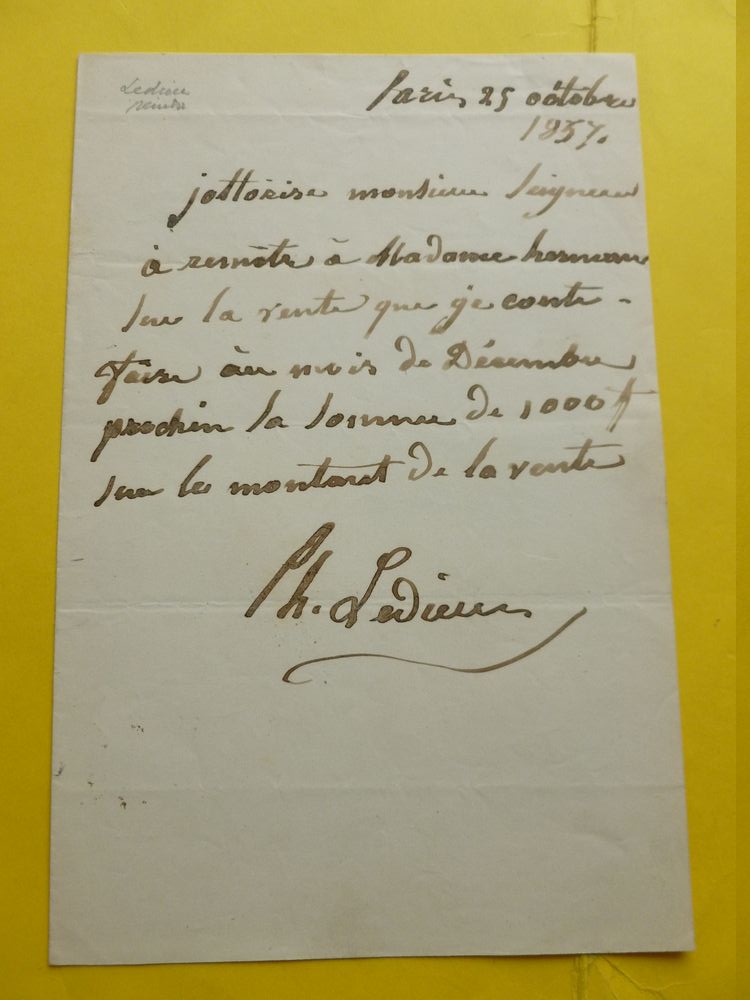 Ledieu
peintre
Paris 25 octobre
1857.
jottorise monsieur Seigneur
à remètre à Madame herman
sur la vente que je conte-
faire àu mois de Décembre
prochin la somme de 1000 f
sur le montant de la vente
Ph. Ledieu